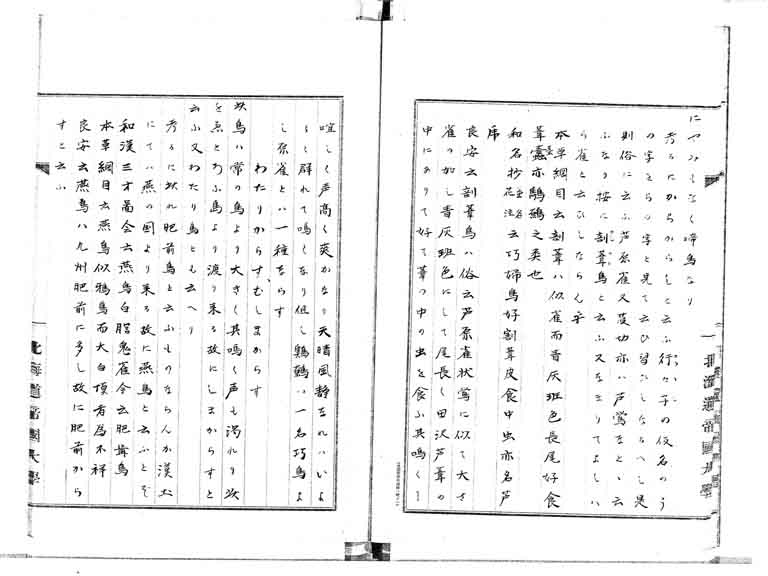 にやみもなく啼鳥なり
考るにからからしと云ふ行々子の仮名のう
の字をらの字と見て云ひ習ひしならへし是
則俗に云ふ芦原雀又葭切亦ハ芦鶯なと云
ふなり按に剖葦鳥と云ふ又よしハ
ら雀と云ひしならん乎
本草綱目云剖葦ハ似雀而青灰斑色長尾好食
葦蠹亦鷦鷯之类也
和名抄云巧婦鳥好割葦皮食中虫亦名芦
虎
良安云剖葦鳥ハ俗云芦原雀状鶯に似て大さ
雀の如し青灰斑色にして尾長く田沢芦葦の
中にありて好て葦の中の虫を食ふ其鳴く
喧しく声高く爽かなり天晴風静なれハいよ
いよ群れて鳴くなり但し鷦鷯ハ一名巧鳥よ
し原雀とハ一種ならす
わたりからす、むしまからす
此鳥ハ常の鳥より大きく其鳴く声も濁れり此
鳥より渡り来る故にしまからすと
云ふ又わたり鳥とも云へり
考るに此れ肥前鳥と云ふものならんか漢土
にてハ燕の国より来る故に燕鳥と云ふとそ
和漢三才圖会云燕烏白脰鬼雀今云肥前烏
本草綱目云燕烏似鴉烏而大白項有為不祥
良安云燕烏ハ九州肥前に多し故に肥前から
すと云ふ
北海道帝國大學
北海道帝國大學